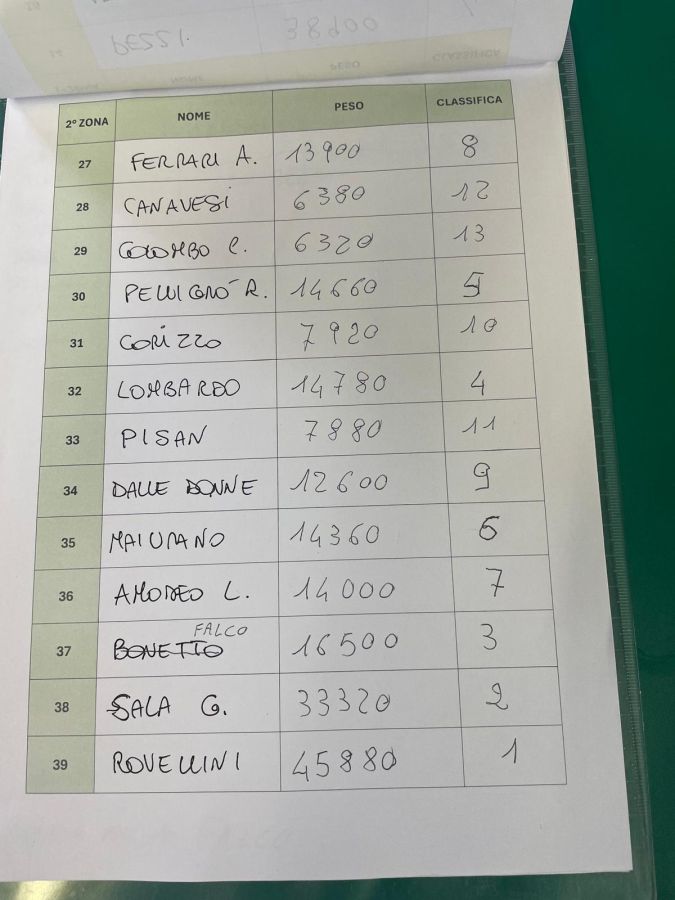 PESSI. 38900
2º ZONA NOME PESO CLASSIFICA
27 FERRARI A. 13900 8
28 CANAVESI 6380 12
29 COLOMBO C. 6320 13
30 PELLIGNO' R. 14660 5
31 GORIZZO 7920 10
32 LOMBARDO 14780 4
33 PISAN 7880 11
34 DALLE DONNE 12600 9
35 MAIURANO 14360 6
36 AMODEO L. 14000 7
FALCO
37 BONETTO 16500 3
38 SALA G. 33320 2
39 ROVELLINI 45880 1